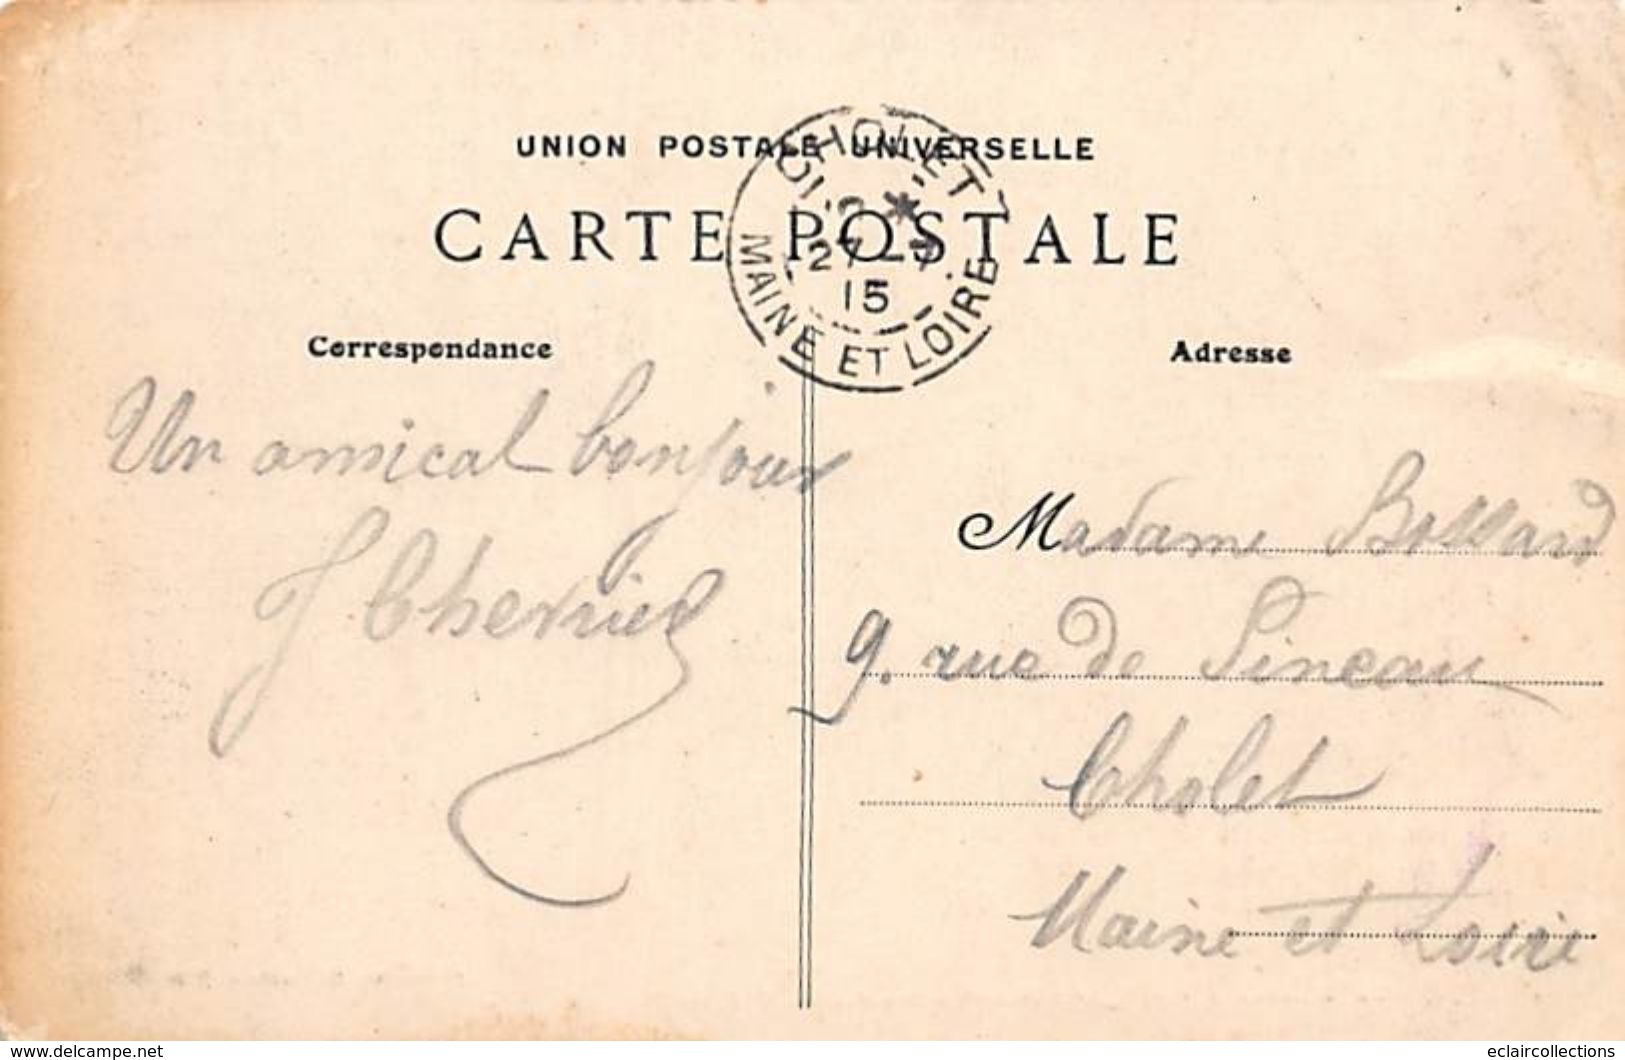 UNION POSTALE UNIVERSELLE
CARTE POSTALE
CHOLET
27 -7
15
MAINE ET LOIRE
Correspondance
Adresse
Un amical bonjour
Madame Bossard
9. rue de Pineau
Cholet
Maine et Loire
www.delcampe.net
eclaircollections